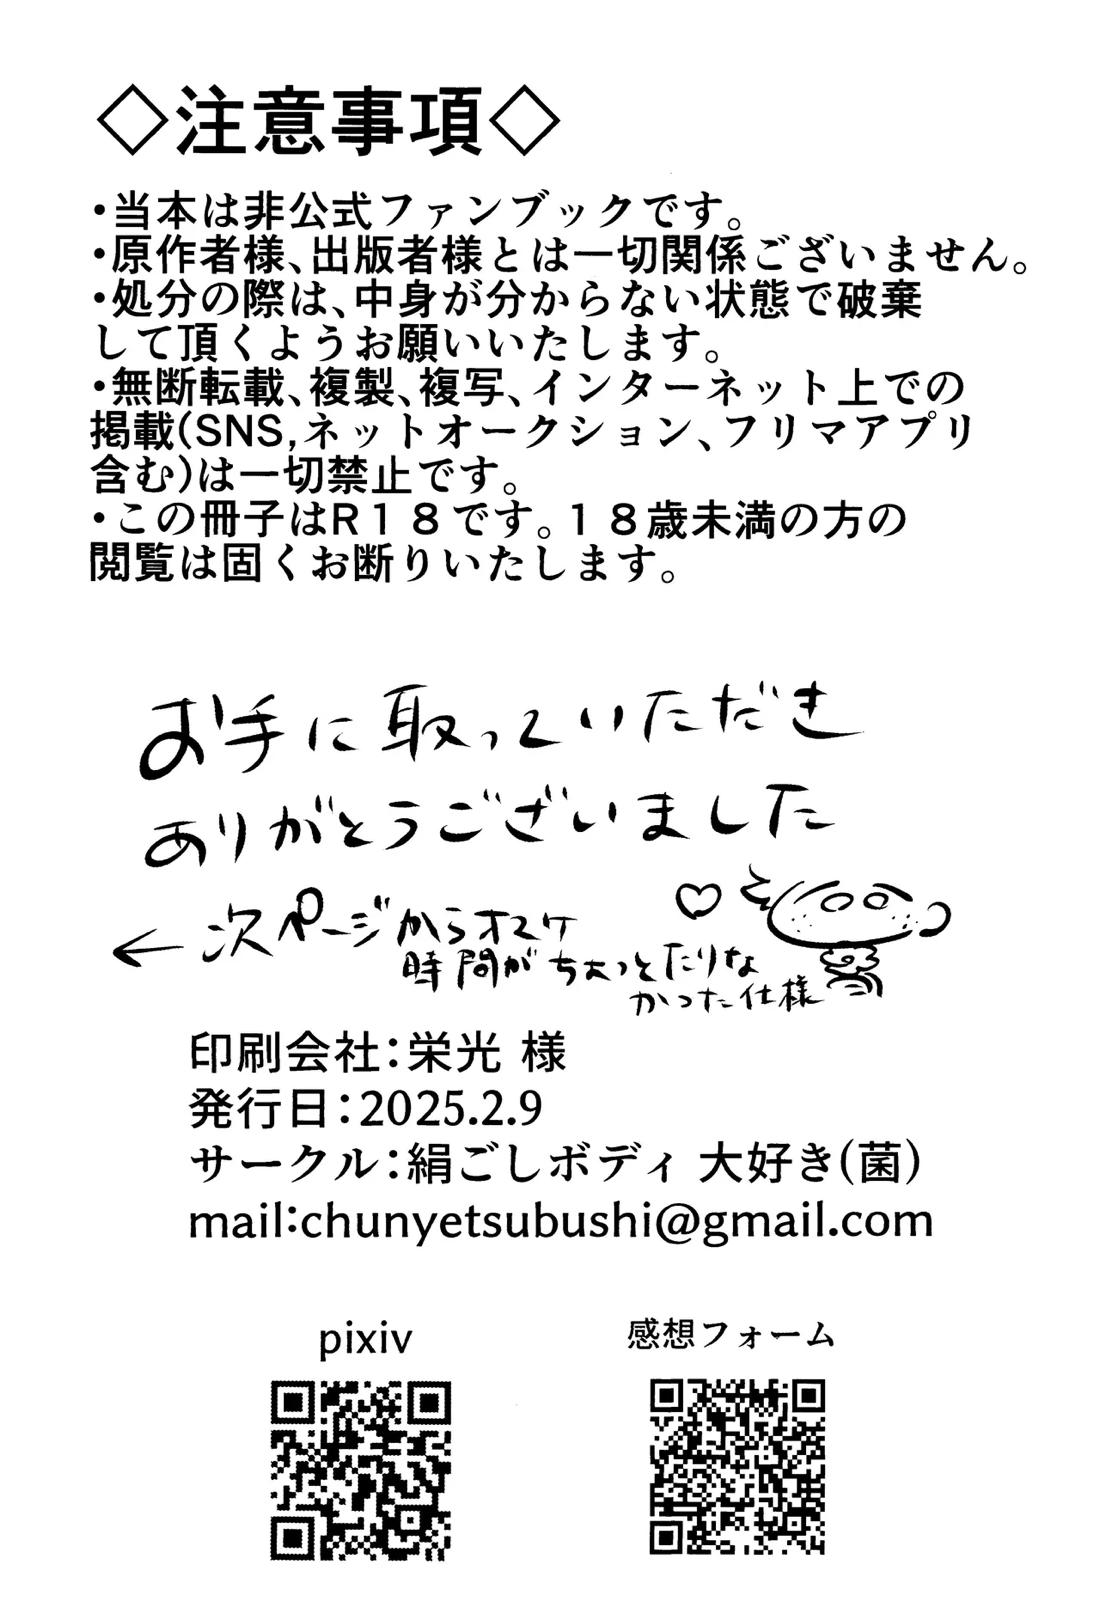 ◇注意事項◇
・当本は非公式ファンブックです。
・原作者様、出版者様とは一切関係ございません。
・処分の際は、中身が分からない状態で破棄
して頂くようお願いいたします。
・無断転載、複製、複写、インターネット上での
掲載(SNS,ネットオークション、フリマアプリ
含む)は一切禁止です。
・この冊子はR18です。18歳未満の方の
閲覧は固くお断りいたします。
お手に取っていただき
ありがとうございました
←次ページからオマケ
時間がちょっとたりな
かった仕様
印刷会社:栄光 様
発行日:2025.2.9
サークル:絹ごしボディ 大好き(菌)
mail:chunyetsubushi@gmail.com
pixiv
感想フォーム